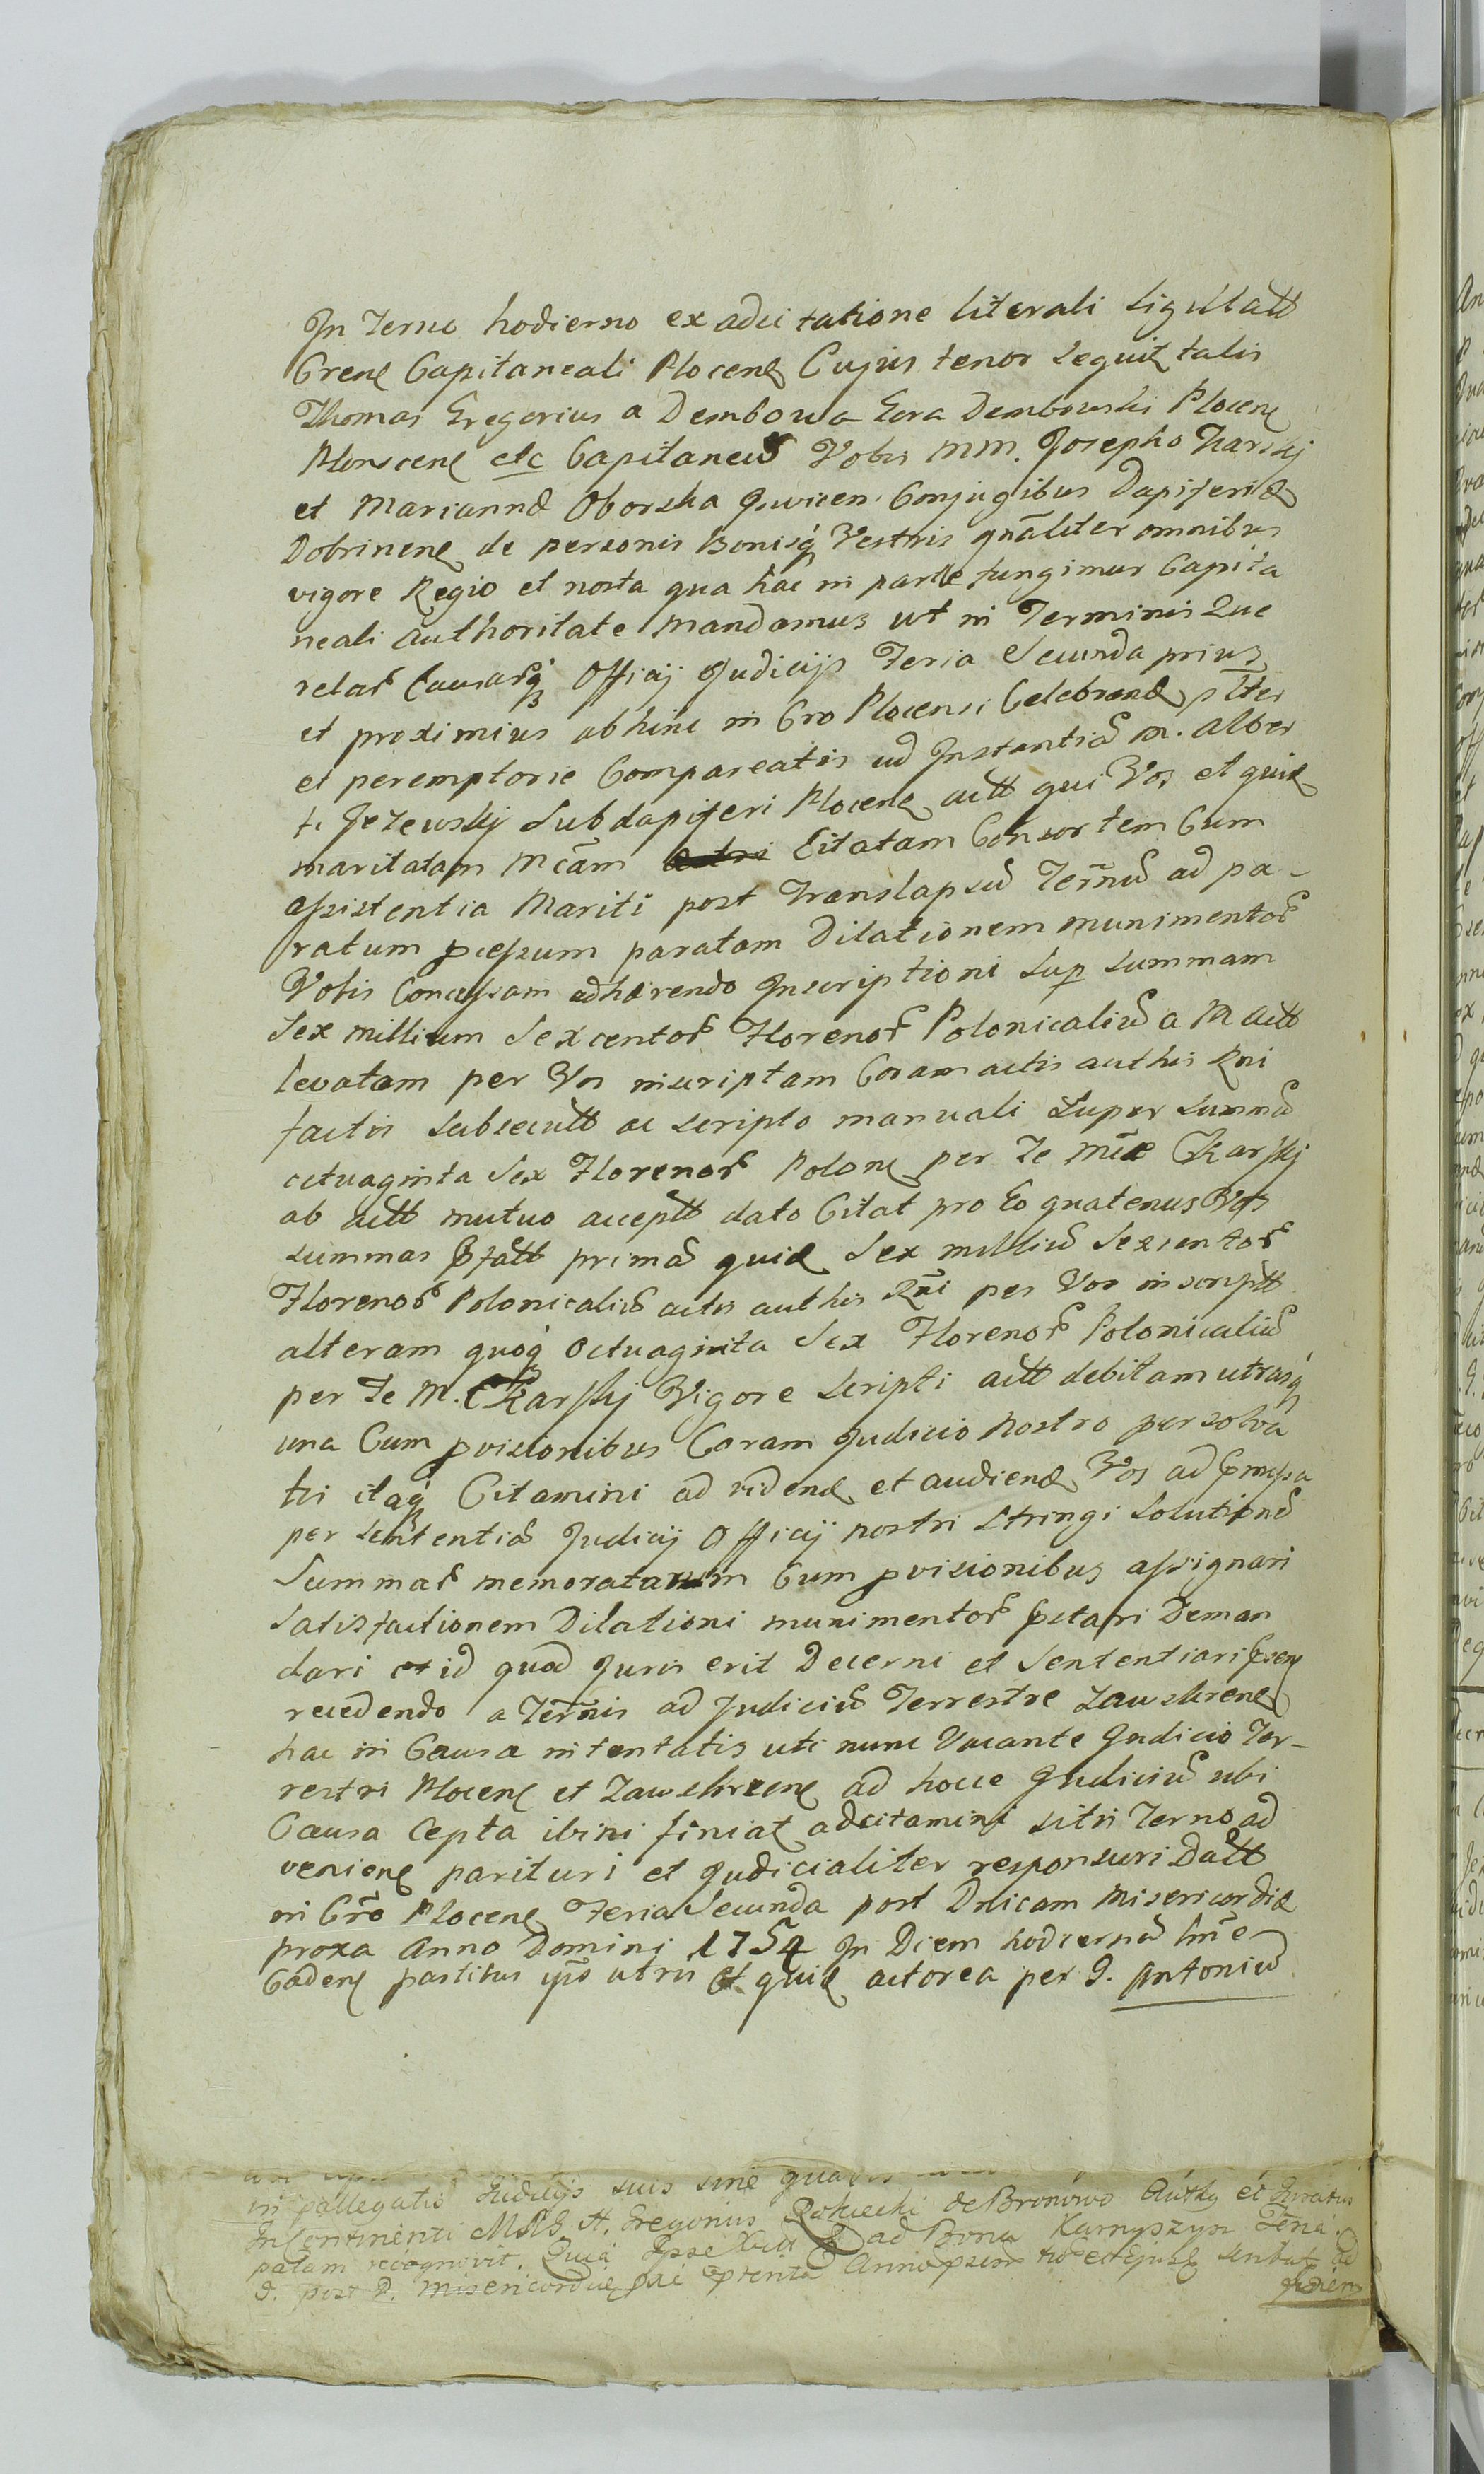 In Terno hodierno ex adcitatione literali Sigillatt
Crenẽ Capitaneali Plocenẽ Cujus tenor Sequitz talis
Thomas Gregorius a Dembowa Gora Dembowski Plocenẽ
Plonscenẽ etc Capitaneus Vobis MM. Josepho Karskj
et Mariannæ Oborska Juvicem Conjugibus Dapiferidæ
Dobrinenẽ de personis Bonisq̃ Vestris gnãliter omnibus
vigore Regio et nosta qua hac in parte fungimur Capita
neali authoritate mandamus ut in Terminis Que
relar̃ Causarq̃ Officij Judicijs Feria Secunda prius
et proximius abhinc in Cro Plocensi Celebrand pr̃lter
et peremptorie Compareatis ad Instantiã M. Alber
ti Jezewskj Subdapiferi Plocenẽ actt qui Vos et quid
maritatam Mcãm Citatam Consortem Cum
assistentia Mariti post Translapsũ Terñũ ad pa-
ratum pcessum paratam Dilationem munimentor̃
Vobis Concessam adhærendo Inscriptioni Sup Summam
Sex millium Sexcentor̃ Florenor̃ Polonicaliũ a M actt
levatam per Vos inscriptam Coram actis authis Rni
factis subsecutt ac scripto manuali Super Summã
octuaginta Sex Florenor̃ Polonẽ per Te Mcæ Karskj
ab actt mutuo acceptt dato Citat pro Eo quatenus Vos
summas pfatt primã quid Sex milliũ Sexcentor̃
Florenor̃ Polonicaliũ actis authis Rni per Vos inscriptt
alteram quoq̃ Octuaginta Sex Florenor̃ Polonicaliũ
per Te M. Karskj Vigore Scripti actt debitam utrasq̃
una Cum pvisionibus Coram Judicio Nostro persolva
tis itaq̃ Citamini ad vidend et audiend Vos ad pmissa
per Sententiã Judicij Officij nostri Stringi Solutionẽ
Summar̃ memoratarum Cum pvisionibus assignari
Satisfactionem Dilationi munimentor̃ pstari Deman
dari et id quod Juris erit Decerni et Sententiari psenẽ
recedendo a Terñis ad Judiciũ Terrestre Zawskrenẽ
hac in Causa intentatis uti nunc Vacante Judicio Ter-
restri Plocenẽ et Zawskrzenẽ ad hocce Judiciũ ubi
Causa Cepta ibini finiat adcitamini sitis Terno ad
venienẽ parituri et Judicialiter responsuri Datt
in Grõ Plocenẽ Feria Secunda post Dnicam Misericordiæ
proxa Anno Domini 1754 In Diem hodiernã lm̃e
Cadenẽ partibus ip̃o utris Et quid actorea per G. Antoniũ
in pallegatis Judicijs suis sine
InContinenti Gregorius Rokicki de Bronowo Authg et Juratus
palam recognovit. Quia Ipse ad Bona Karnyszyn Feria
d. post D. Misericordiæ